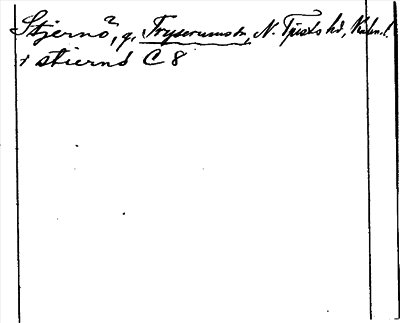 Stjernö, g, Tryserums sn, N. Tjusts hd, Kalm. l.
+ stiernö C 8